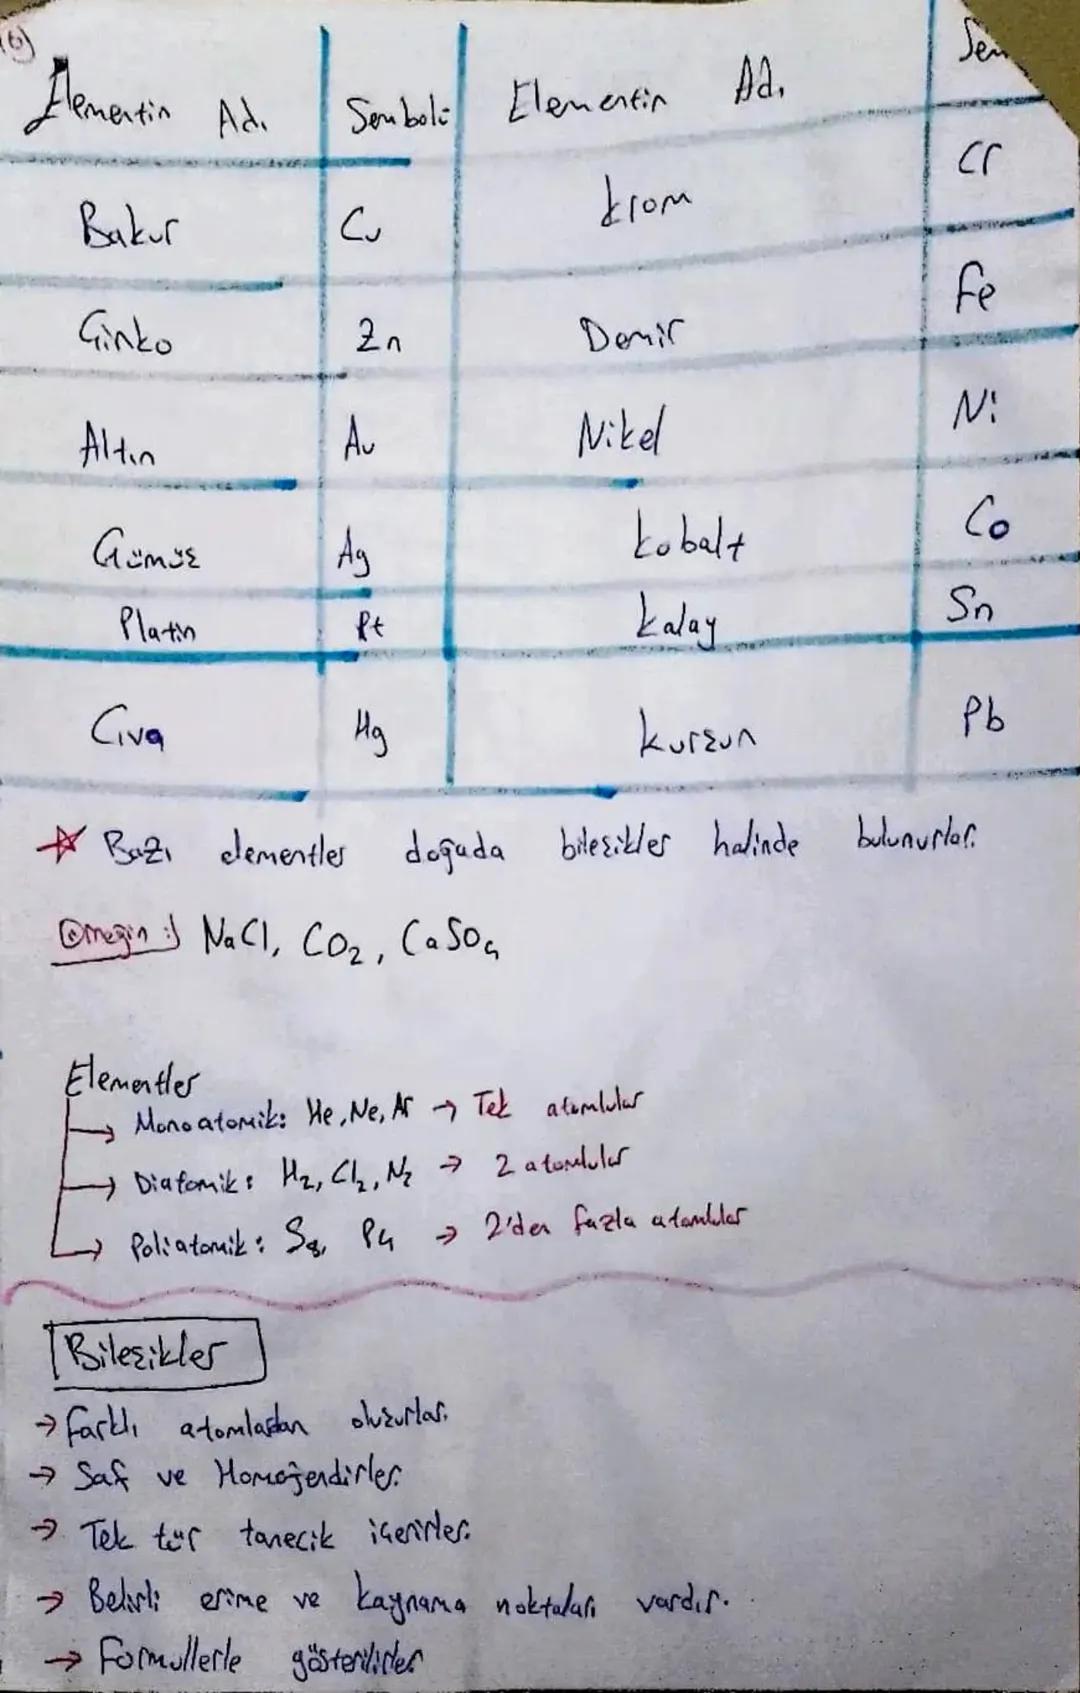 6)
Elementin Adı Sembolü Elementin Adı Sem
Bakır Cu Krom Cr
Çinko Zn Demir Fe
Altın Au Nikel Ni
Gümüş Ag Kobalt Co
Platin Pt Kalay Sn
Cıva Hg Kurşun Pb
☆ Bazı elementler doğada bileşikler halinde bulunurlar.
Örneğin :) NaCl, CO₂, CaSO₄
Elementler
→ Monoatomik: He, Ne, Ar → Tek atomlular
→ Diatomik: H₂, Cl₂, N₂ → 2 atomlular
→ Poliatomik: S₈, P₄ → 2'den fazla atomlular
Bileşikler
→ Farklı atomlardan oluşurlar.
→ Saf ve Homojendirler.
→ Tek tür tanecik içerirler.
→ Belirli erime ve kaynama noktaları vardır.
→ Formullerle gösterilirler